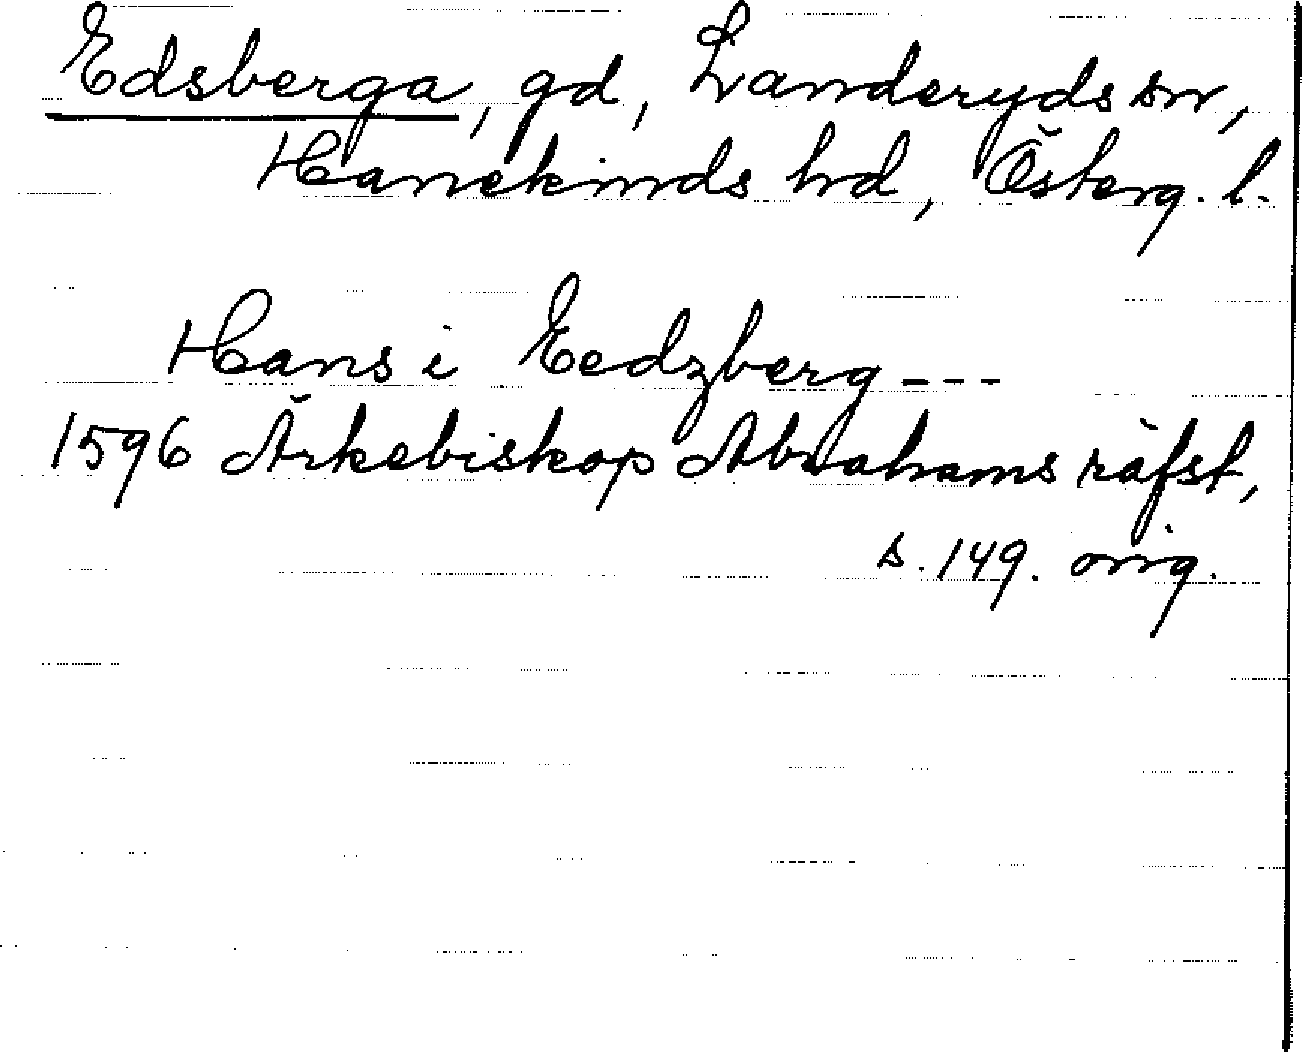 Edsberga, gd, Landeryds sn,
Hanekinds hd, Österg. l.
Hans i Eedzberg ---
1596 Ärkebiskop Abrahams räfst,
s. 149. orig.